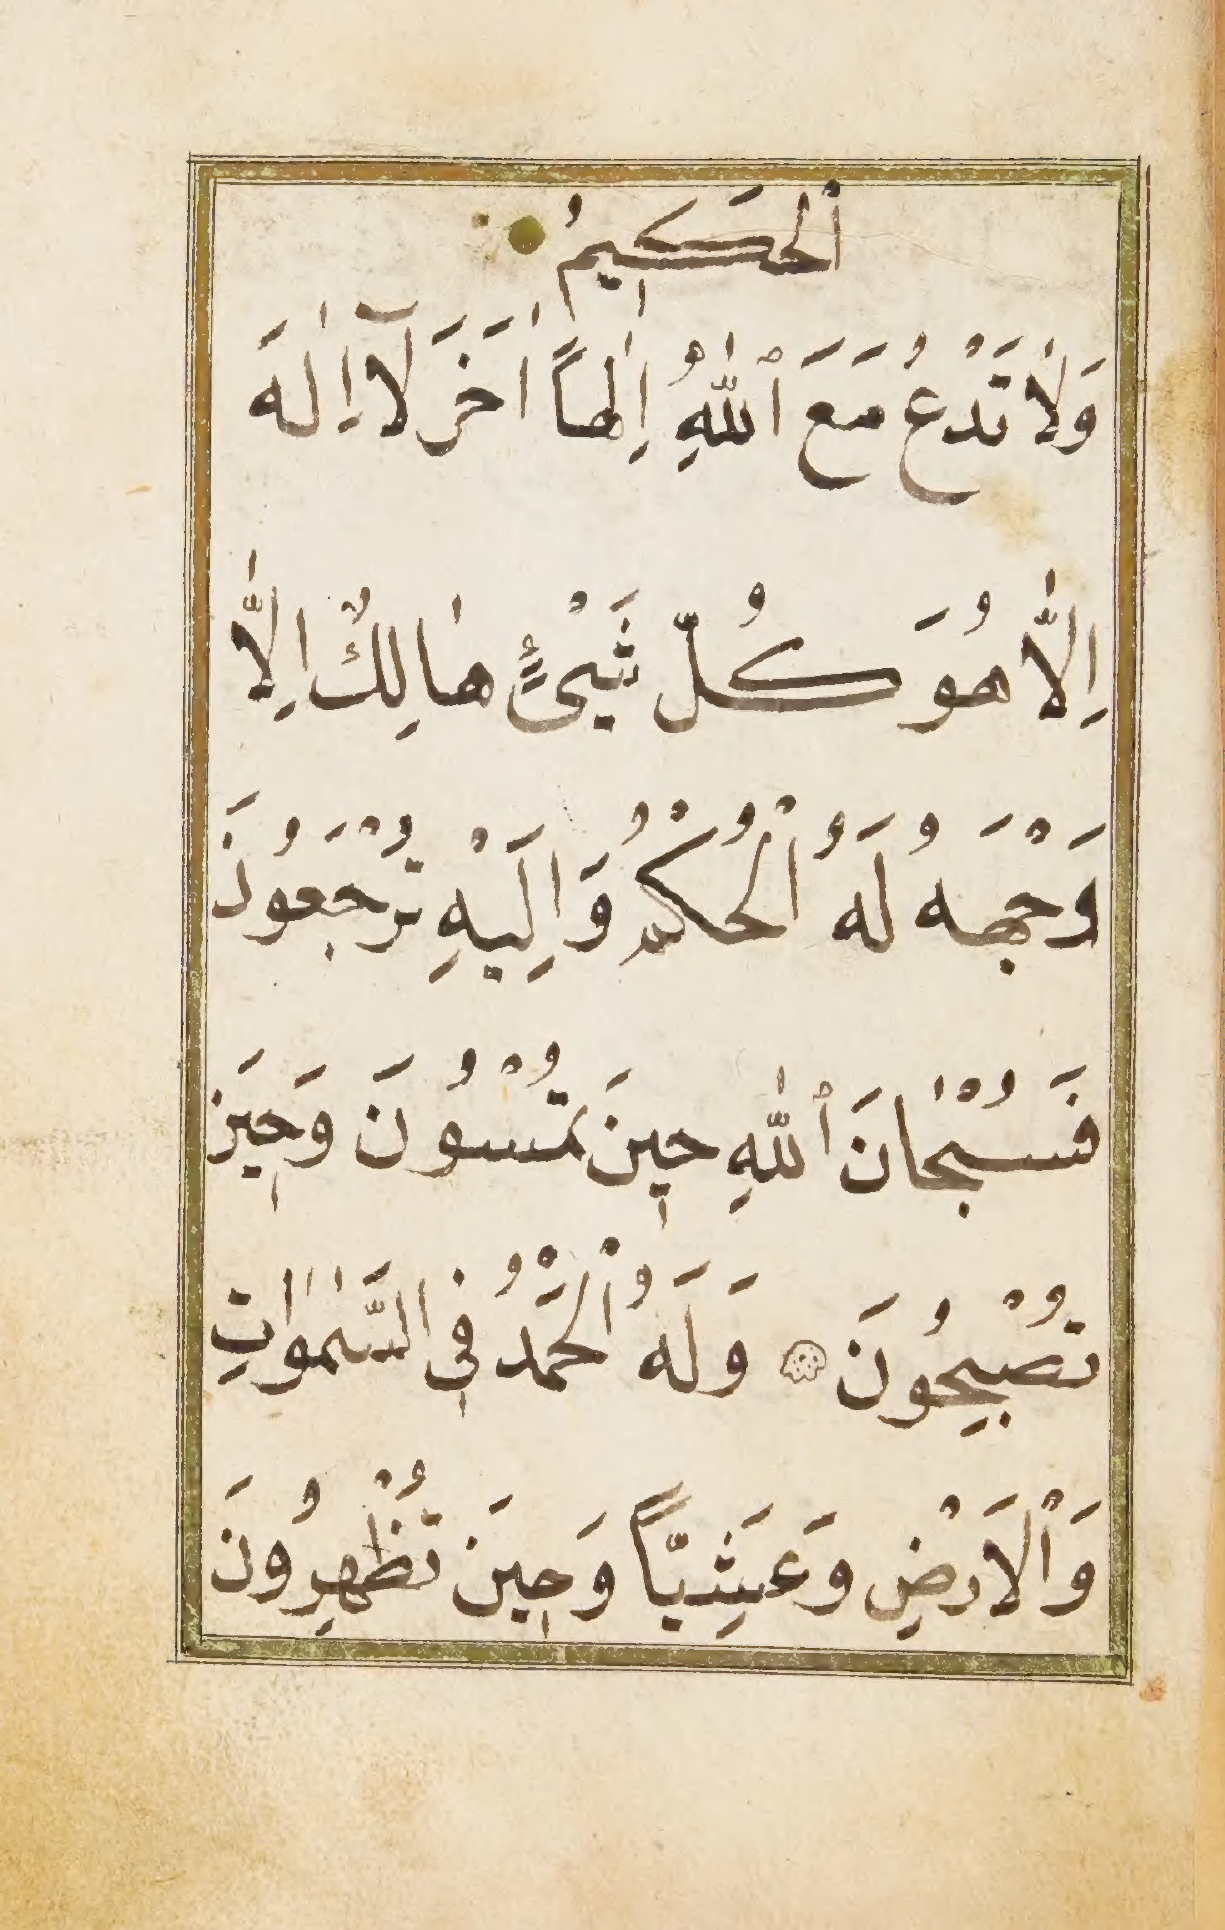 اَلْحَكَيمُ
وَلَا تَدْعُ مَعَ ٱللّٰهِ اِلٰهاً اٰخَرَ لَآ اِلٰهَ
اِلَّا هُوَ كُلُّ شَيْئٍ هَالِكٌ اِلَّا
وَجْهَهُ لَهُ الْحُكْمُ وَاِلَيْهِ تُرْجَعُونَ
فَسُبْحَانَ ٱللّٰهِ حِينَ تُمْسُونَ وَحِينَ
تُصْبِحُونَ ۝ وَلَهُ الْحَمْدُ فِي السَّمٰوَاتِ
وَالْاَرْضِ وَعَشِيّاً وَحِينَ تُظْهِرُونَ